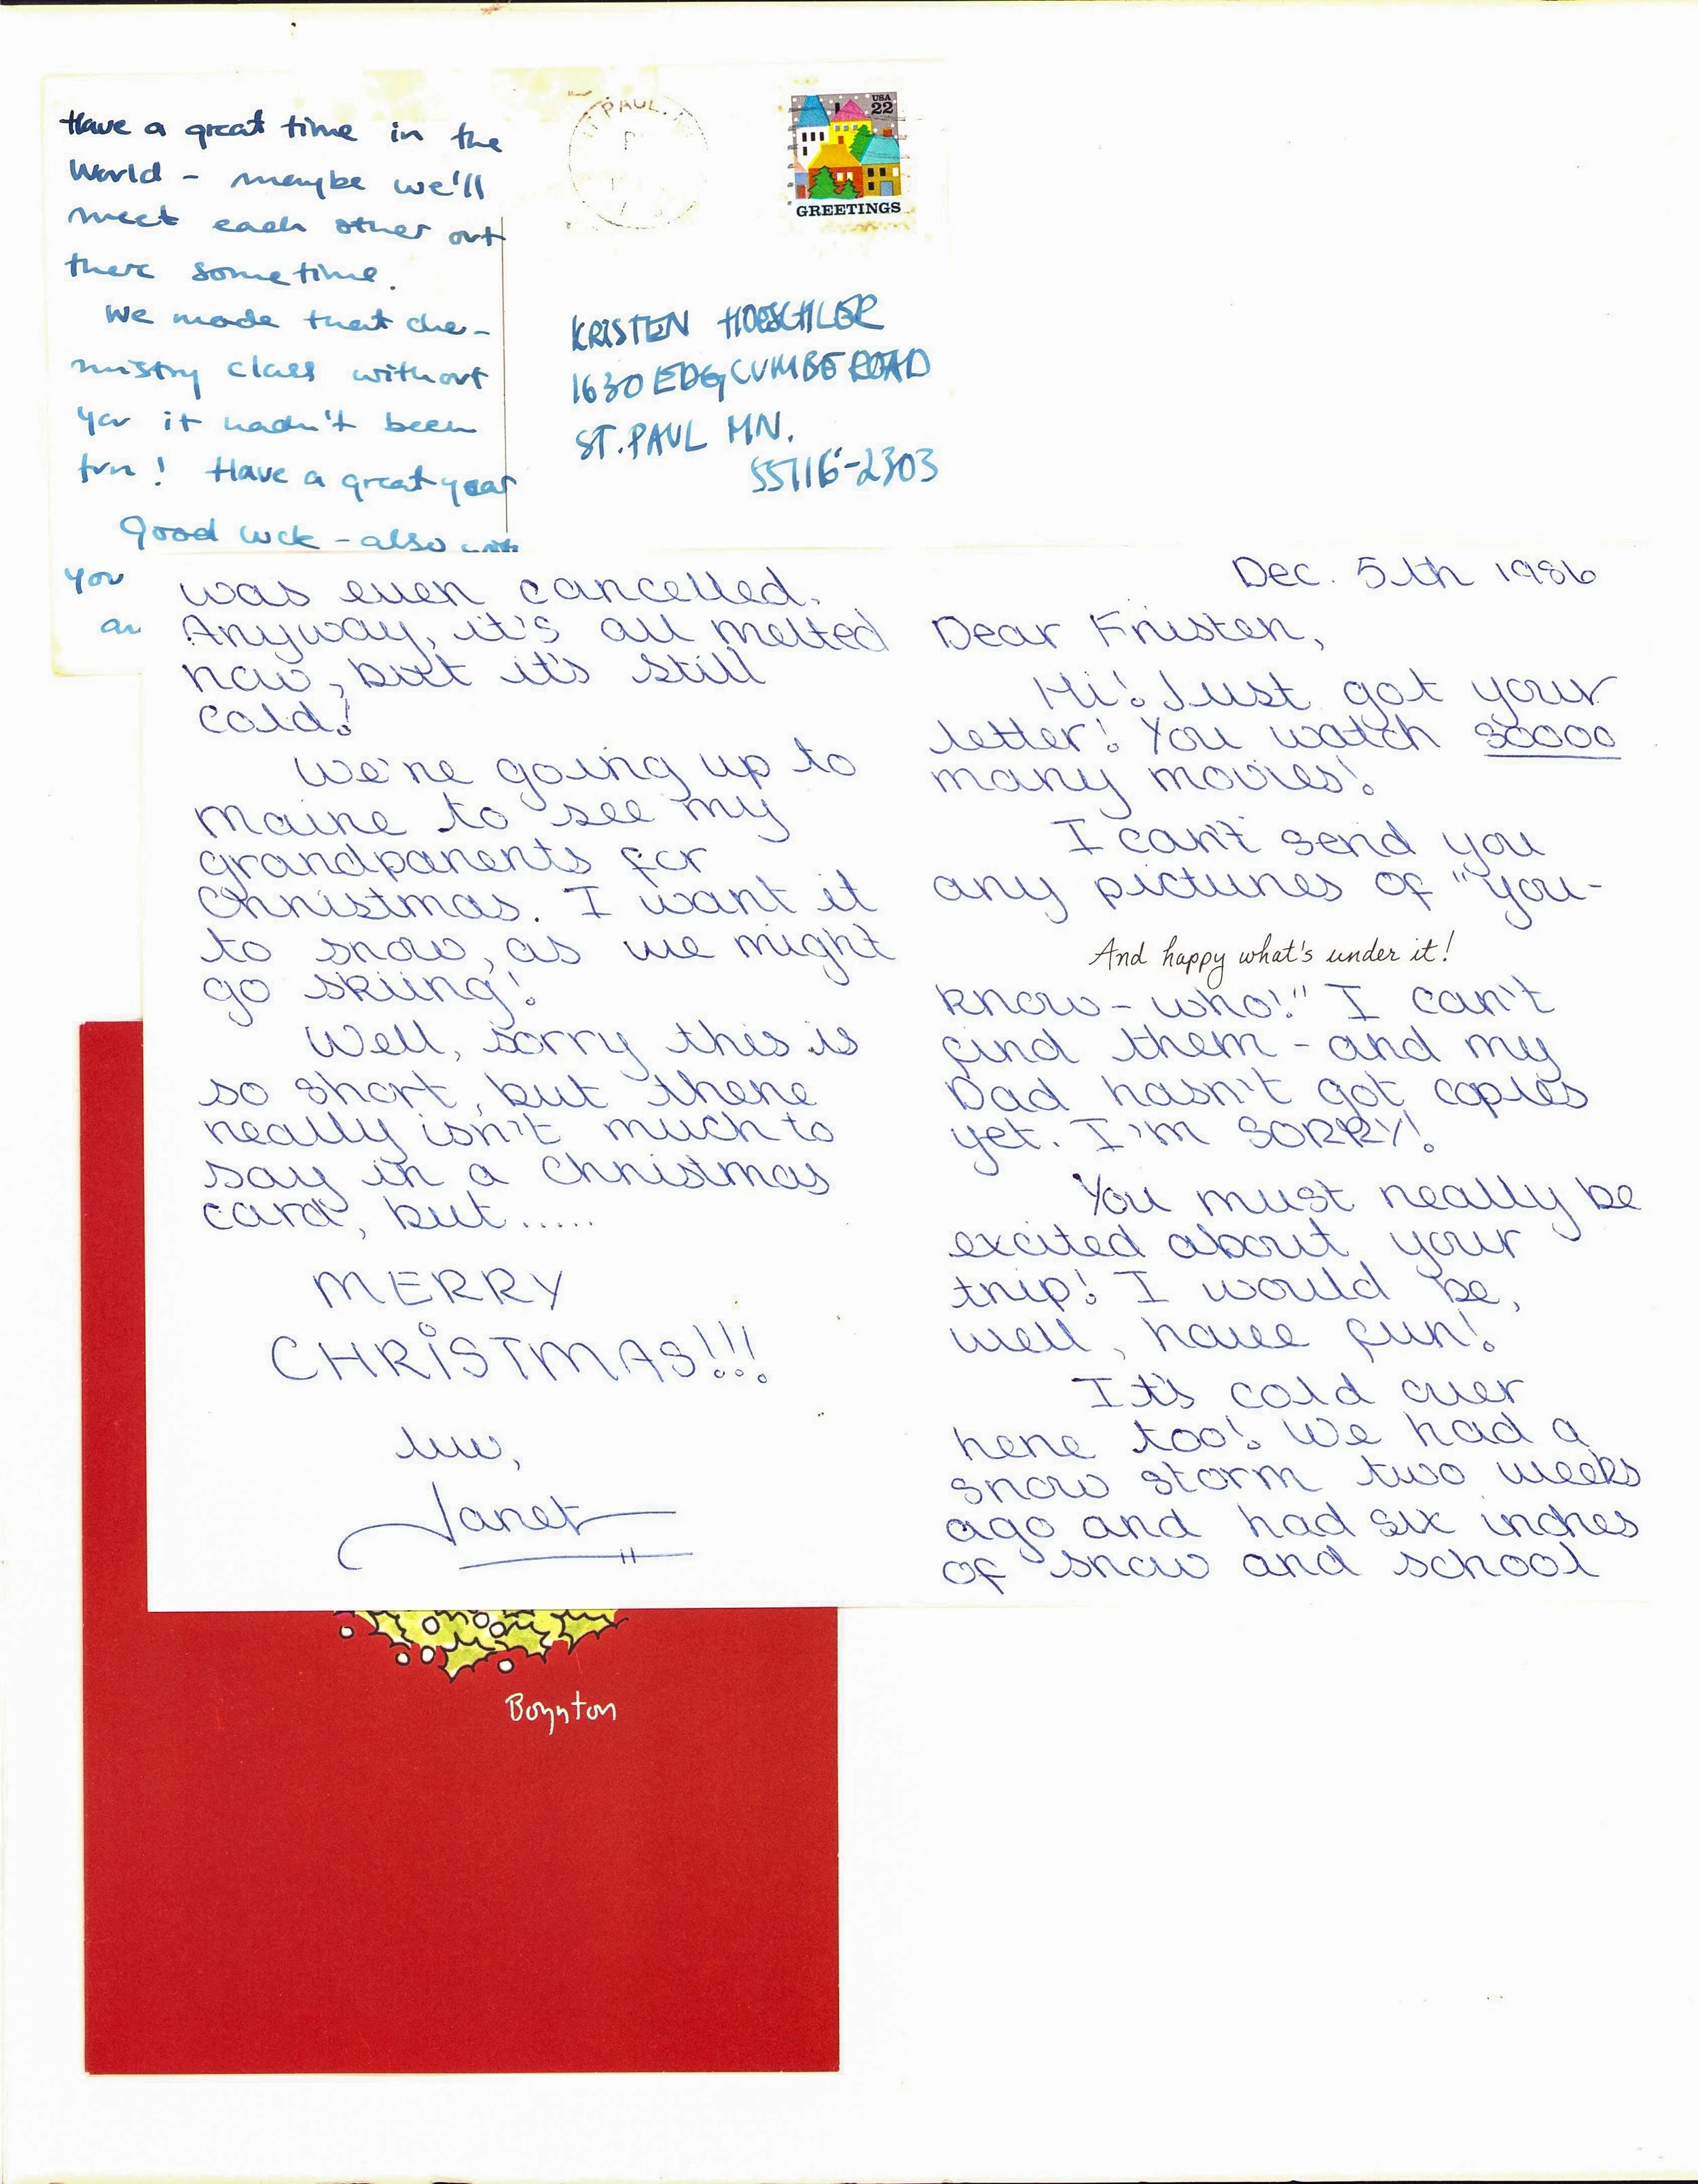 Have a great time in the
World - maybe we'll
meet each other out
there sometime.
We made that che-
mistry class without
you it hadn't been
fun! Have a great year
Good luck - also with
you
PAUL
USA
22
GREETINGS
KRISTEN HOESCHLER
1630 EDGCUMBE ROAD
ST. PAUL MN.
55116-2303
Dec. 5th 1986
Dear Kristen,
Hi! Just got your
letter! You watch soooo
many movies!
I can't send you
any pictures of "you-
And happy what's under it!
know-who!" I can't
find them - and my
Dad hasn't got copies
yet. I'm SORRY!
You must really be
excited about your
trip! I would be,
well, have fun!
It's cold over
here too! We had a
snow storm two weeks
ago and had six inches
of snow and school
was even cancelled.
Anyway, it's all melted
now, but it's still
cold!
We're going up to
Maine to see my
grandparents for
Christmas. I want it
to snow, as we might
go skiing!
Well, sorry this is
so short, but there
really isn't much to
say in a Christmas
card, but.....
MERRY
CHRISTMAS!!!
luv,
Janet
Boynton